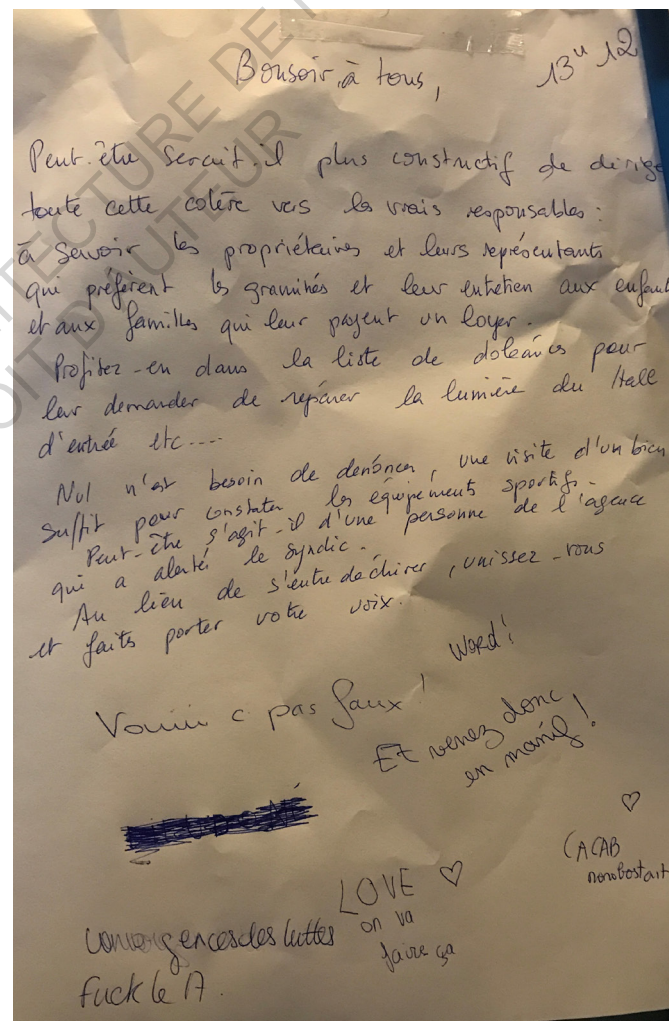 Bonsoir à tous,
13 12
Peut-être serait-il plus constructif de dirige
toute cette colère vers les vrais responsables :
à savoir les propriétaires et leurs représentants
qui préfèrent les graminés et leur entretien aux enfant
et aux familles qui leur payent un loyer.
Profitez-en dans la liste de doléances pour
leur demander de réparer la lumière du Hall
d'entrée etc....
Nul n'est besoin de dénoncer, une visite d'un bien
suffit pour constater les équipements sportifs.
Peut-être s'agit-il d'une personne de l'agence
qui a alerté le syndic.
Au lieu de s'entredéchirer, unissez-vous
et faits porter votre voix.
Word!
c pas faux!
Et venez donc
en manif!
♡
(ACAB
LOVE ♡
on va
faire ça
convergences des luttes
Fuck le 17.
ITECTURE DE
DROIT D'AUTEUR